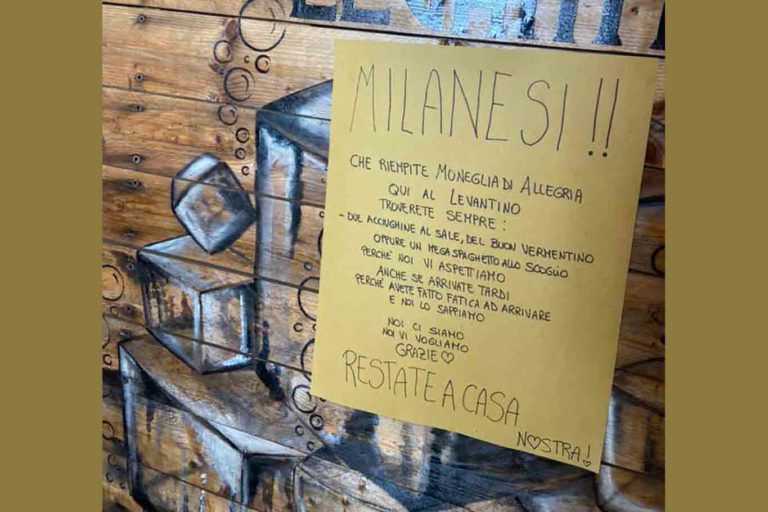 MILANESI!!
CHE RIEMPITE MONEGLIA DI ALLEGRIA
QUI AL LEVANTINO
TROVERETE SEMPRE:
- DUE ACCIUGHINE AL SALE, DEL BUON VERMENTINO
OPPURE UN MEGA SPAGHETTO ALLO SCOGLIO
PERCHE' NOI VI ASPETTIAMO
ANCHE SE ARRIVATE TARDI
PERCHE' AVETE FATTO FATICA AD ARRIVARE
E NOI LO SAPPIAMO
NOI CI SIAMO
NOI VI VOGLIAMO
GRAZIE♡
RESTATE A CASA
N♡STRA!